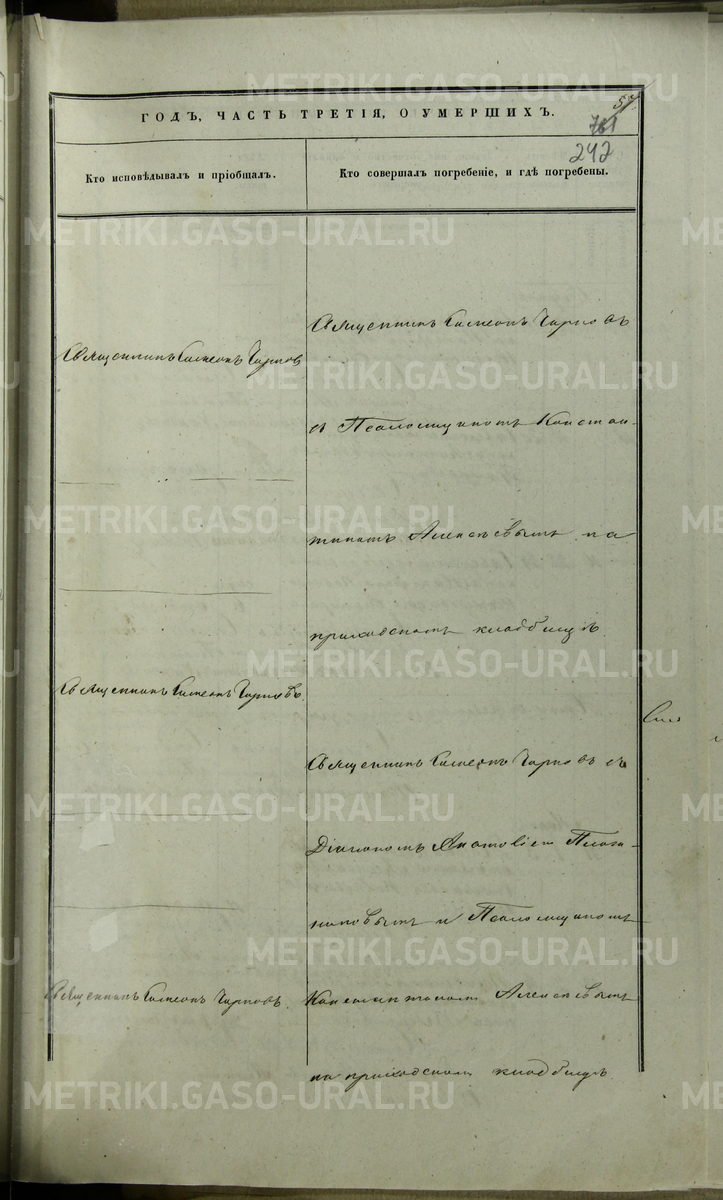 57
ГОДЪ, ЧАСТЬ ТРЕТІЯ, О УМЕРШИХЪ.
781
242
Кто исповѣдывалъ и пріобщалъ.
Кто совершалъ погребеніе, и гдѣ погребены.
Священникъ Симеонъ Чирковъ
Священникъ Симеонъ Чирковъ
Священникъ Симеонъ Чирковъ
Священникъ Симеонъ Чирковъ
съ Псаломщикомъ Констан-
тиномъ Алексѣевымъ на
приходскомъ кладбищѣ
Священникъ Симеонъ Чирковъ съ
Діакономъ
и Псаломщикомъ
Константиномъ Алексѣевымъ
на приходскомъ кладбищѣ
METRIKI.GASO-URAL.RU